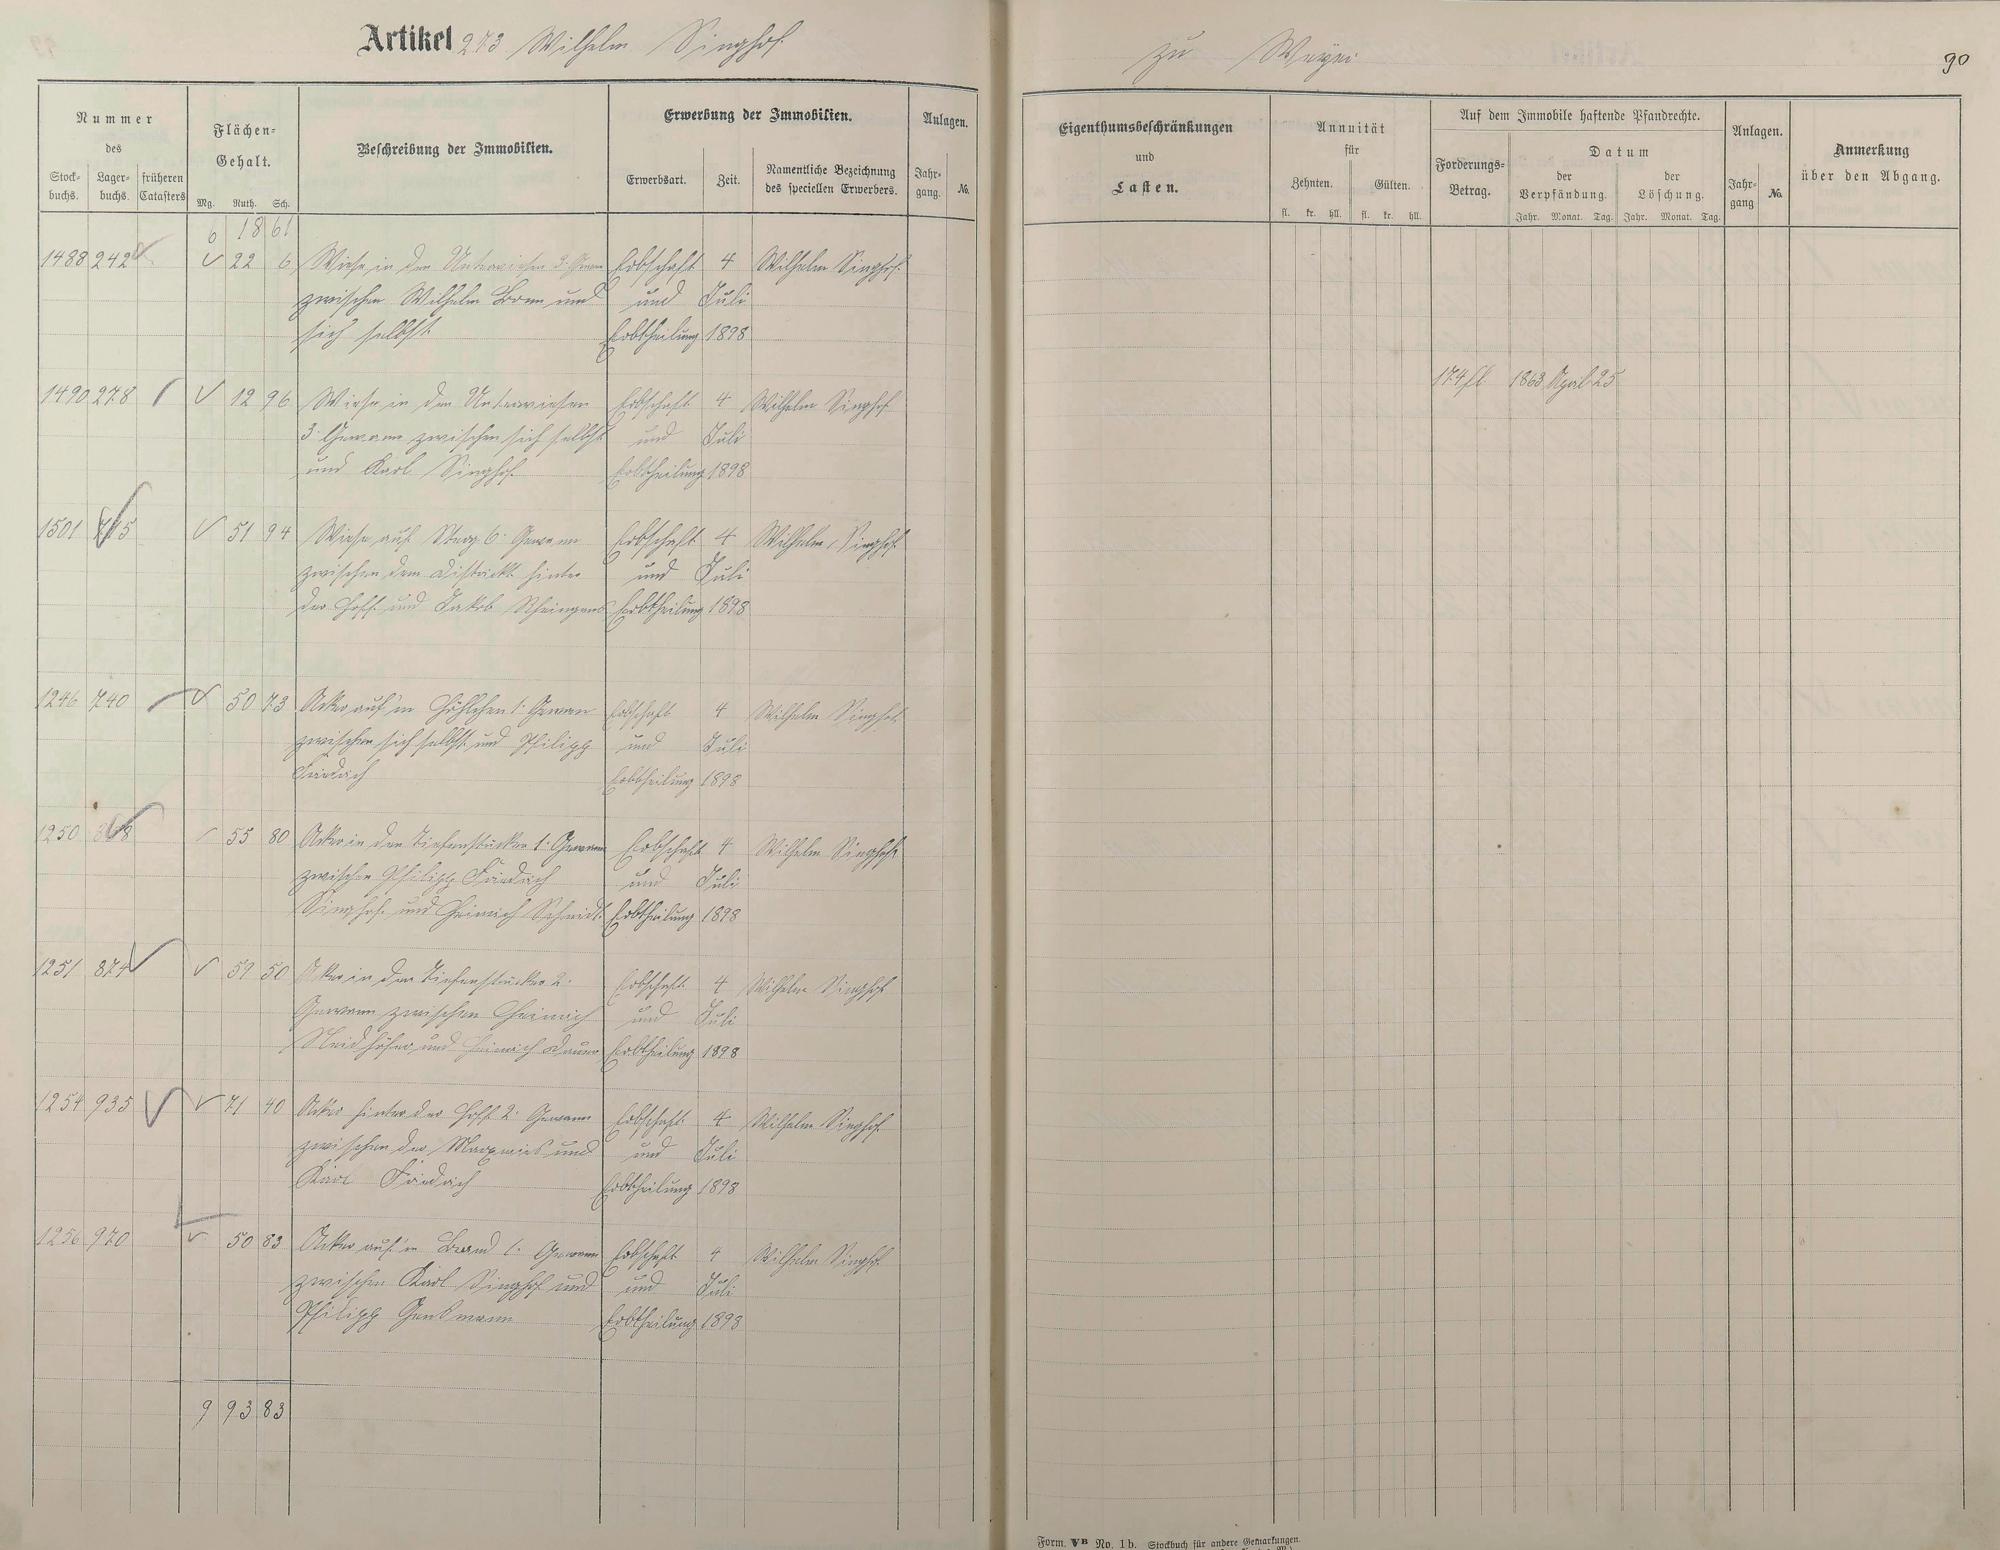 Artikel 273 Wilhelm Singhof
zu Weyer
90
Nummer
des
Stock-
buchs.
Lager-
buchs.
früheren
Catasters
Flächen-
Gehalt.
Mg. Ruth. Sch.
Beschreibung der Immobilien.
Erwerbung der Immobilien.
Erwerbsart.
Zeit.
Namentliche Bezeichnung
des speciellen Erwerbers.
Anlagen.
Jahr-
gang.
No.
Eigenthumsbeschränkungen
und
Lasten.
Annuität
für
Zehnten. Gülten.
fl. kr. hll. fl. kr. hll.
Auf dem Immobile haftende Pfandrechte.
Forderungs-
Betrag.
Datum
der
Verpfändung.
der
Löschung.
Jahr. Monat. Tag. Jahr. Monat. Tag.
Anlagen.
Jahr-
gang
No.
Anmerkung
über den Abgang.
6 18 61
1488 242 22 6 Wiese in den Unterwiesen 3. Gewann Erbschaft 4 Wilhelm Singhof
zwischen Wilhelm Born und und Juli
sich selbst Erbtheilung 1898
174 fl 1863 April 25
1490 278 12 96 Wiese in den Unterwiesen Erbschaft 4 Wilhelm Singhof
3. Gewann zwischen sich selbst und Juli
und Karl Singhof Erbtheilung 1898
1501 51 94 Wiese auf Gewann Erbschaft 4 Wilhelm Singhof
zwischen dem Districkt hinter und Juli
der Hoff und Jakob Erbtheilung 1898
1246 740 50 73 Acker auf'm Höhlchen 1. Gewann Erbschaft 4 Wilhelm Singhof
zwischen sich selbst und Philipp und Juli
Erbtheilung 1898
1250 55 80 Acker in den Tiefenstücker 1. Gewann Erbschaft 4 Wilhelm Singhof
zwischen Philipp und Juli
Singhof und Heinrich Schmidt Erbtheilung 1898
1251 874 59 50 Acker in den Tiefenstücker 2. Erbschaft 4 Wilhelm Singhof
Gewann zwischen Heinrich und Juli
Neidhöfer und Heinrich Dauer Erbtheilung 1898
1254 935 71 40 Acker hinter der Hoff 2. Gewann Erbschaft 4 Wilhelm Singhof
zwischen der und und Juli
Karl Erbtheilung 1898
1256 970 50 83 Acker auf'm Brand 1. Gewann Erbschaft 4 Wilhelm Singhof
zwischen Karl Singhof und und Juli
Philipp Erbtheilung 1898
9 93 83
Form. VB No. 1b. Stockbuch für andere Gemarkungen.